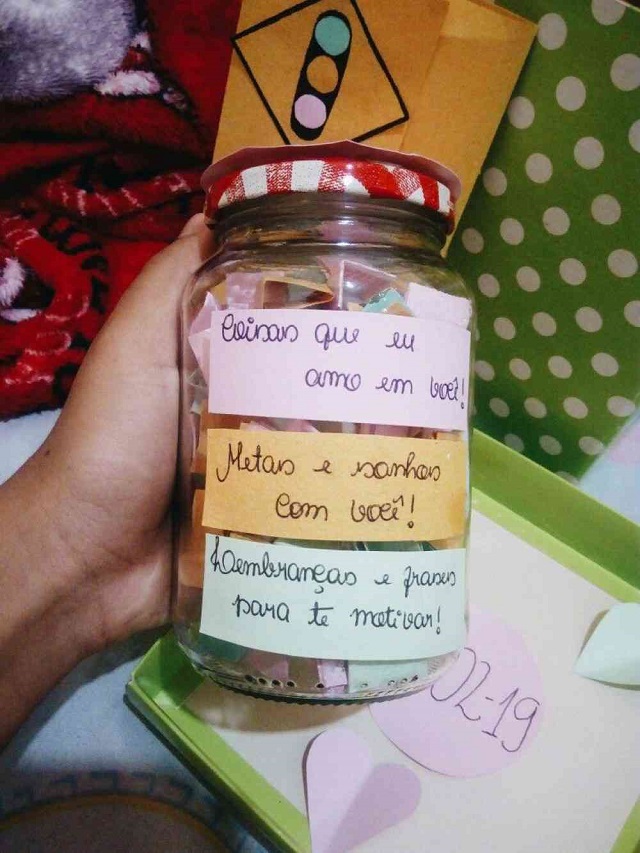 Coisas que eu
amo em você!
Metas e sonhos
com você!
Lembranças e frases
para te motivar!
02-19